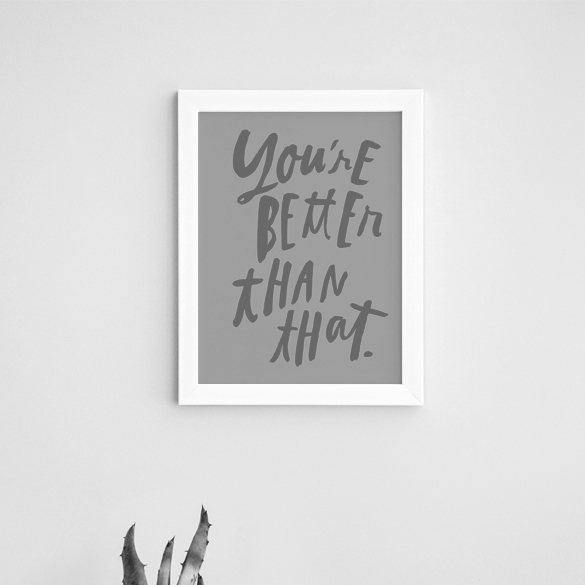 You're
BETTER
tHAN
tHat.